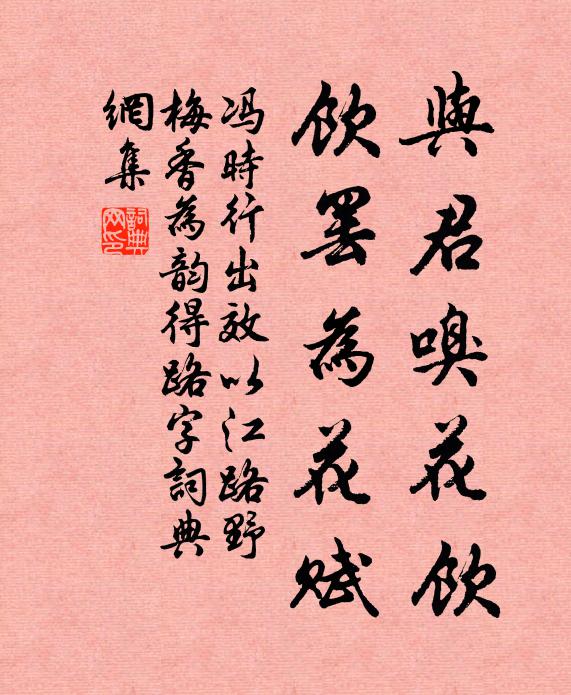 與君嗅花飲
飲罷為花赋
冯時行出效以江路野
梅香為韵得路字詞典
網集
詞典
网印